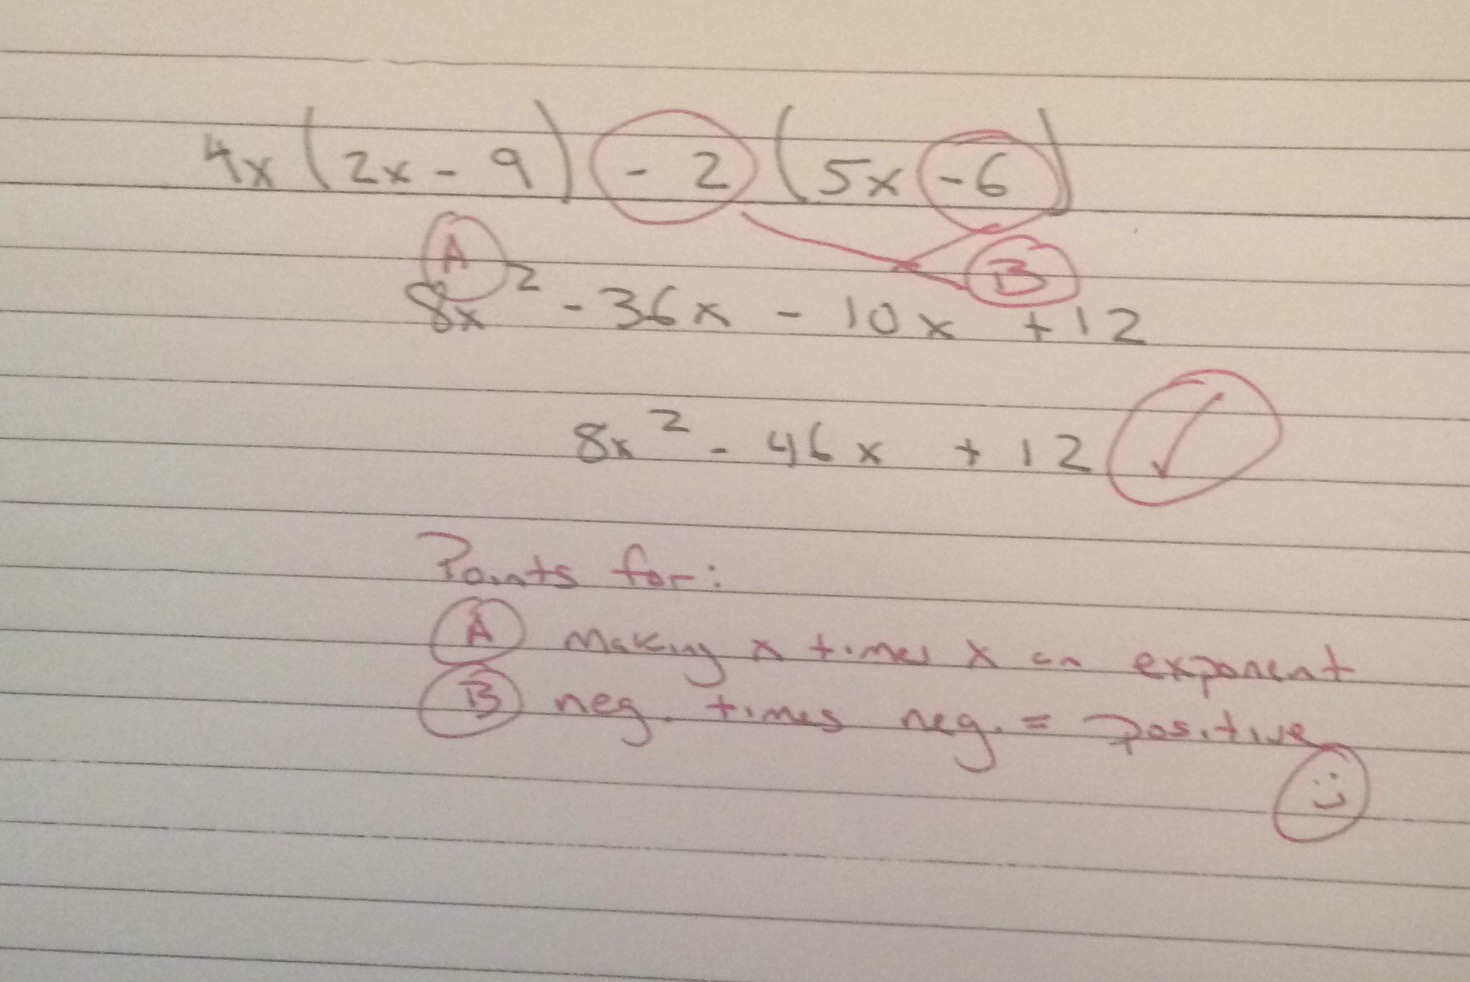 4x(2x - 9) - 2(5x - 6)
A B
8x² - 36x - 10x + 12
8x² - 46x + 12 ✓
Points for:
A making x times x an exponent
B neg. times neg. = positive
:)